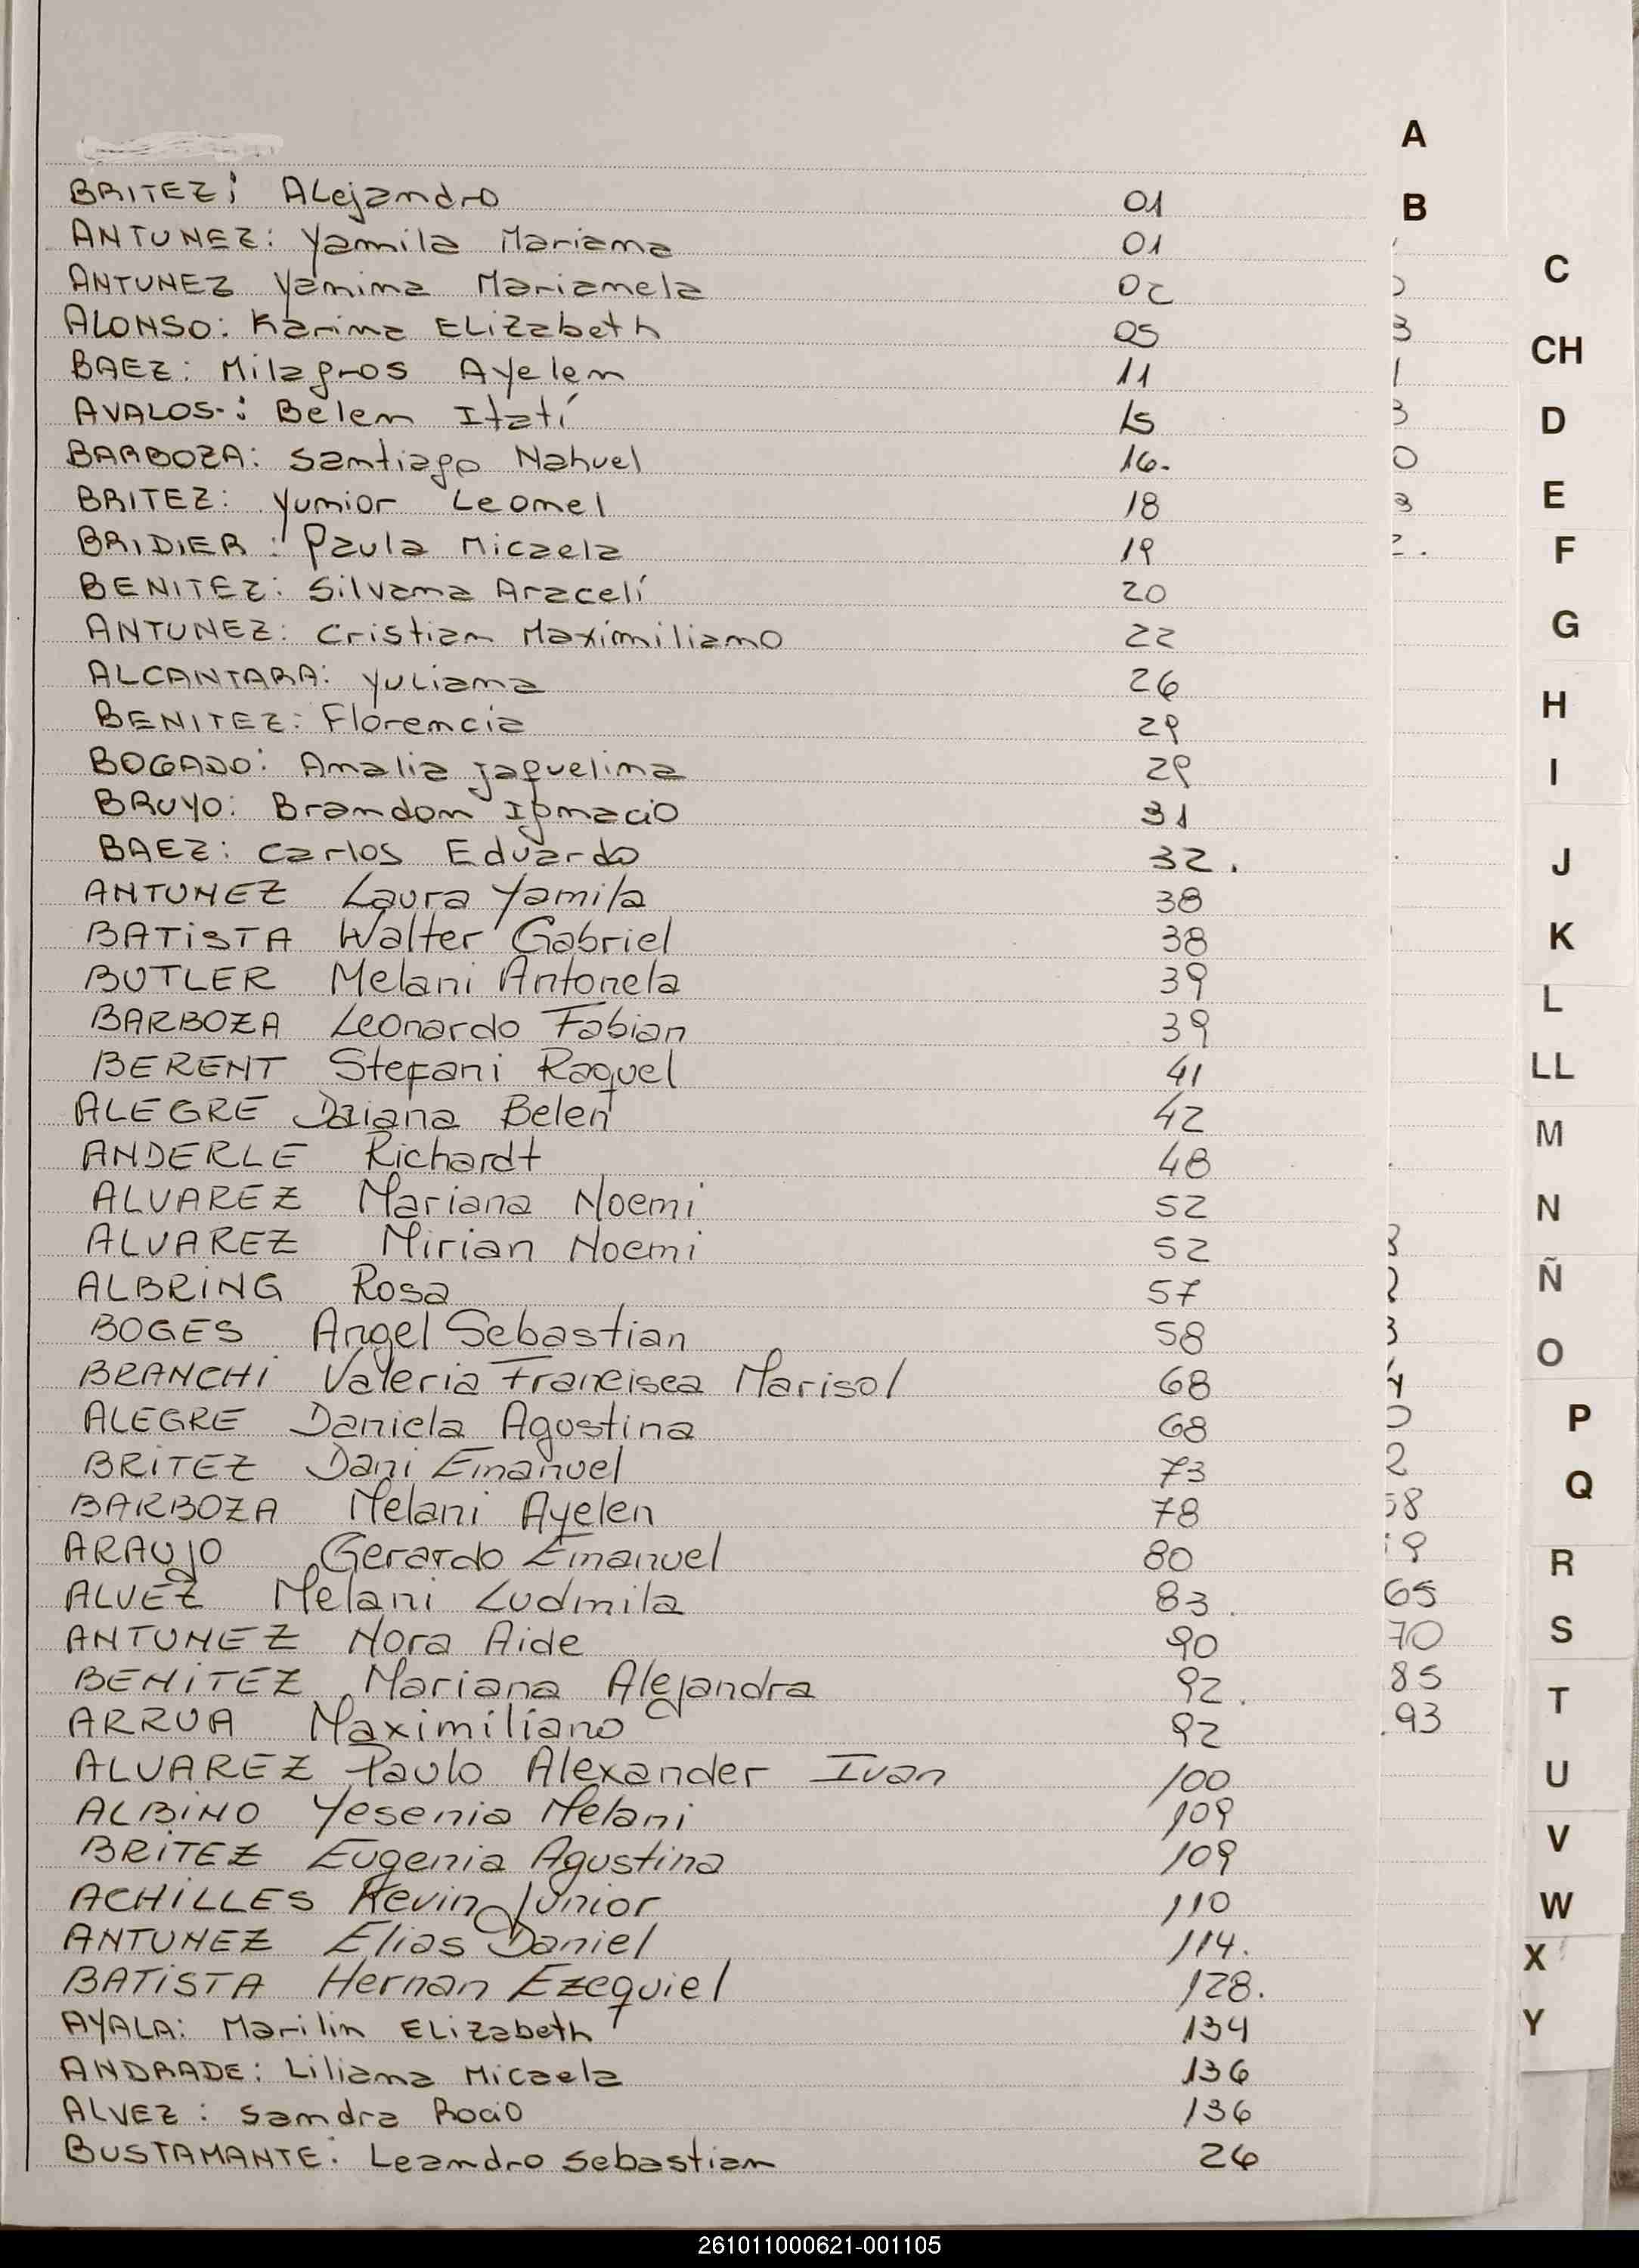 A
BRITEZ: Alejandro 01
B
ANTUNEZ: Yamila Mariana 01
C
ANTUNEZ Yanina Marianela 02
ALONSO: Karina ELizabeth 05
3
CH
BAEZ: Milagros Ayelen 11
AVALOS-: Belen Itatí 15
3
D
BARBOZA: Santiago Nahuel 16.
0
BRITEZ: Yunior Leonel 18
3
E
BRIDIER: Paula Micaela 19
2.
F
BENITEZ: Silvana Aracelí 20
ANTUNEZ: Cristian Maximiliano 22
G
ALCANTARA: YuLiana 26
BENITEZ: Florencia 29
H
BOGADO: Amalia Jaquelina 29
I
BRUYO: Brandon Ignacio 31
BAEZ: Carlos Eduardo 32.
J
ANTUNEZ Laura Yamila 38
BATiSTA Walter Gabriel 38
K
BUTLER Melani Antonela 39
L
BARBOZA Leonardo Fabian 39
BERENT Stefani Raquel 41
LL
ALEGRE Daiana Belen 42
M
ANDERLE Richardt 48
ALVAREZ Mariana Noemi 52
N
ALVAREZ Mirian Noemi 52
3
ALBRiNG Rosa 57
2
Ñ
BOGES Angel Sebastian 58
3
O
BRANCHi Valeria Francisca Marisol 68
4
ALEGRE Daniela Agostina 68
P
BRiTEZ Dani Emanuel 73
2
Q
BARBOZA Melani Ayelen 78
58
ARAUJO Gerardo Emanuel 80
9
R
ALVEZ Melani Ludmila 83.
65
ANTUNEZ Nora Aide 90
70
S
BENiTEZ Mariana Alejandra 92.
85
T
ARRUA Maximiliano 92
93
ALVAREZ Paulo Alexander Ivan 100
U
ALBiNO Yesenia Melani 109
V
BRiTEZ Eugenia Agustina 109
ACHiLLES Kevin Junior 110
W
ANTUNEZ Elias Daniel 114.
X
BATiSTA Hernan Ezequiel 128.
AYALA: Marilin ELizabeth 134
Y
ANDRADE: Liliana Micaela 136
ALVEZ: Sandra Rocio 136
BUSTAMANTE: Leandro Sebastian 26
261011000621-001105